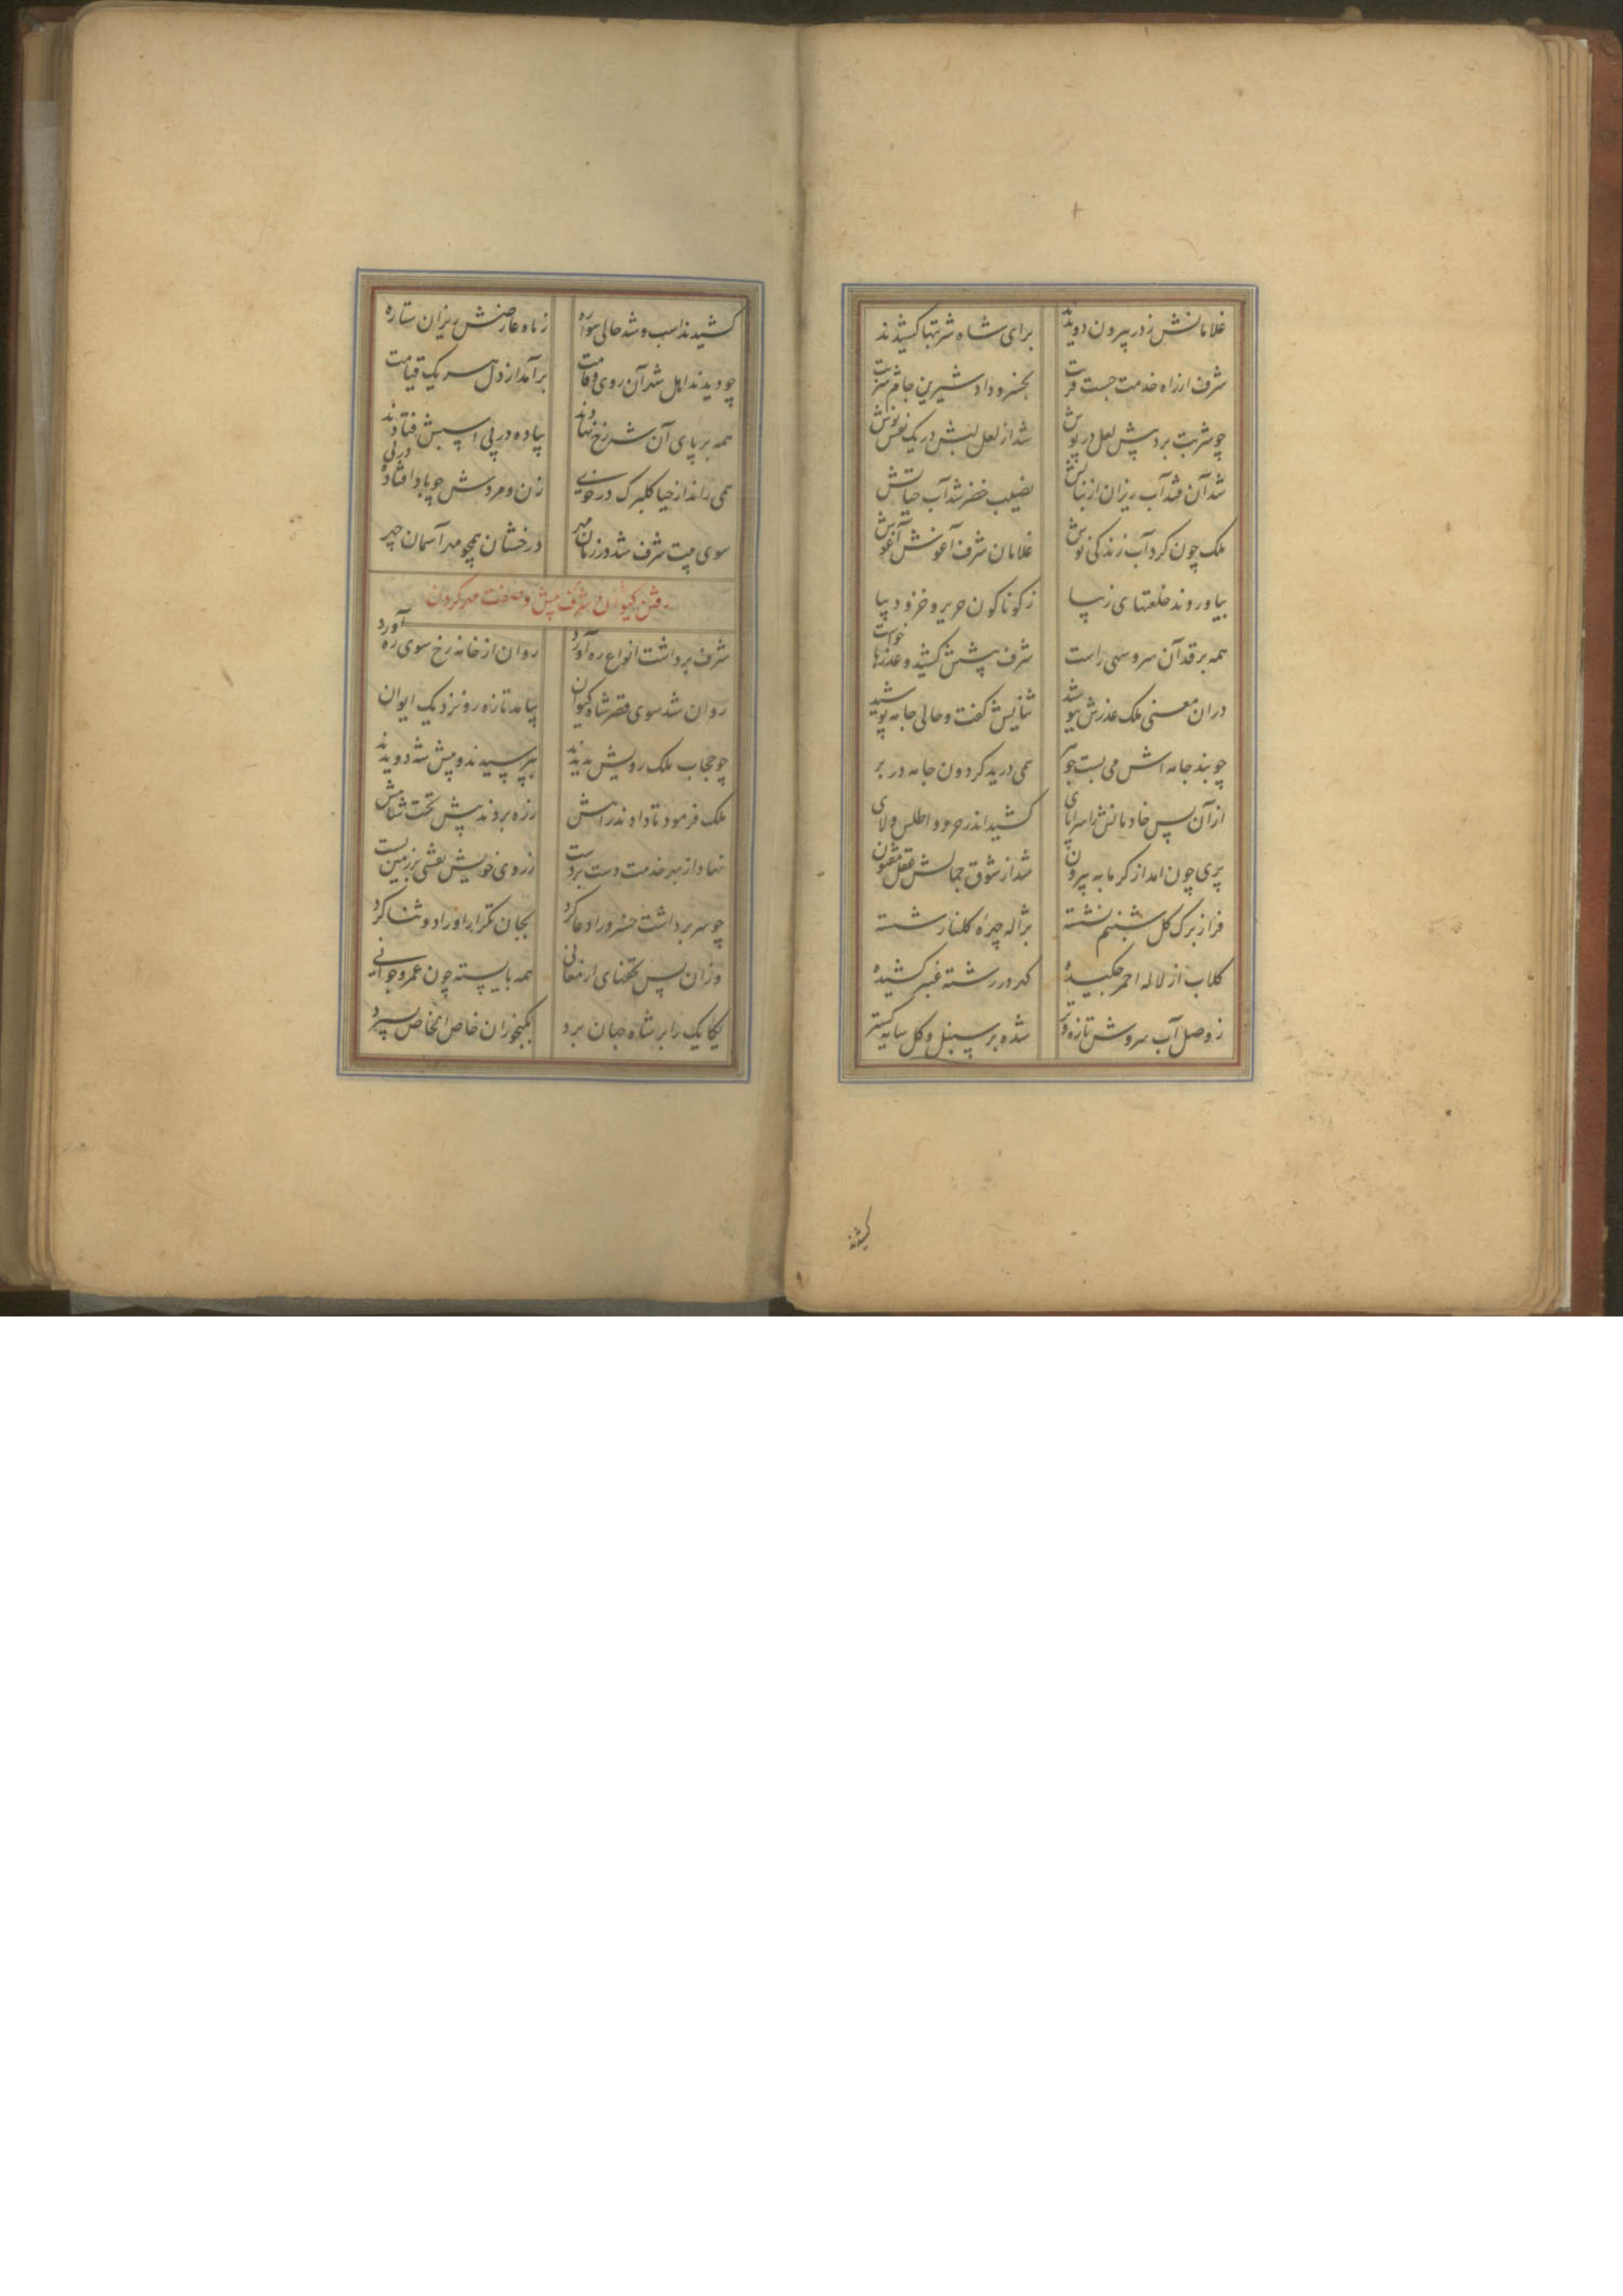 غلامانش ز در بیرون دویدند برای شاه شربتها کشیدند
شرف از راه خدمت جست قربت بخسرو داد شیرین جام شربت
چو شربت برد پیش لعل در پوش شد از لعل لبش در یک نفس نوش
شد آن قند آب ریزان از نباتش نصیب خضر شد آب حیاتش
ملک چون کرد آب زندگی نوش غلامان شرف آغوش آغوش
بیاوردند خلعتهای زیبا ز کوناکون حریر و خز و دیبا
همه بر قد آن سرو سهی راست شرف پیشش کشید و عذرها خواست
دران معنی ملک عذرش نیوشید ثنایش کفت و حالی جامه پوشید
چو بند جامه اش می بست جو همی درید کردون جامه در بر
از آن پس خادمانش را سراپای کشید اندر و اطلس و لای
پری چون امد از کرمابه بیرون شد از شوق جمالش عقل مفتون
فراز برک کل شبنم نشسته بژاله چهره کلنار شسته
کلاب از لاله احمر چکیده کهر در رشته عنبر کشیده
ز وصل آب سروش تازه و تر شده بر سنبل و کل سایه کستر
کشیدند
کشیدند اسب و شد حالی سواره ز ماه عارضش ریزان ستاره
چو دیدند اهل شهر آن روی و قامت برآمد از دل هر یک قیامت
همه بر پای آن شه رخ نهادند پیاده در پی اسپش فتادند
همی راند از حیا کلبرک در خوی زن و مردش چو باد افتاده در پی
سوی بیت شرف شد در زمان مهر درخشان همچو مهر آسمان چهر
رفتن کیوان شرف پیش و صفت کردن
شرف برداشت انواع ره آورد روان از خانه رخ سوی ره آورد
روان شد سوی قصر شاه کیوان بیامد تازه رو نزدیک ایوان
چو حجاب ملک رویش بدیدند بپرسیدند و پیش شه دویدند
ملک فرمود تا دادند راهش ز ره بردند پیش تخت شاهش
نهاد از بهر خدمت دست بر دست ز روی خویش نقشی بر زمین بست
چو سر برداشت خسرو را دعا کرد بجان تکرار اوراد و ثنا کرد
وزان پس تحفهای ارمغانی همه بایسته چون عمر و جوانی
یکایک را بر شاه جهان برد بکنجوران خاص الخاص بسپرد